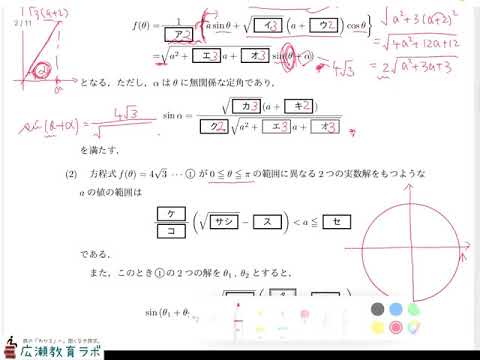 √3(a+2)
2/11
α
a
f(θ) = 1/ア2 { a sin θ + √イ3 (a + ウ2) cos θ }
= √a² + エ3 a + オ3 sin(θ + α)
4√3
√a² + 3(a+2)²
= √4a² + 12a + 12
= 2√a² + 3a + 3
となる。ただし，α は θ に無関係な定角であり，
sin(θ+α) = 4√3/√
sin α = √カ3 (a + キ2) / ク2 √a² + エ3 a + オ3
を満たす．
(2) 方程式 f(θ) = 4√3 ⋯ ① が 0 ≦ θ ≦ π の範囲に異なる 2 つの実数解をもつような
a の値の範囲は
ケ/コ (√サシ − ス) < a ≦ セ
である．
また，このとき①の 2 つの解を θ₁ , θ₂ とすると，
sin (θ₁ + θ₂
広瀬教育ラボ